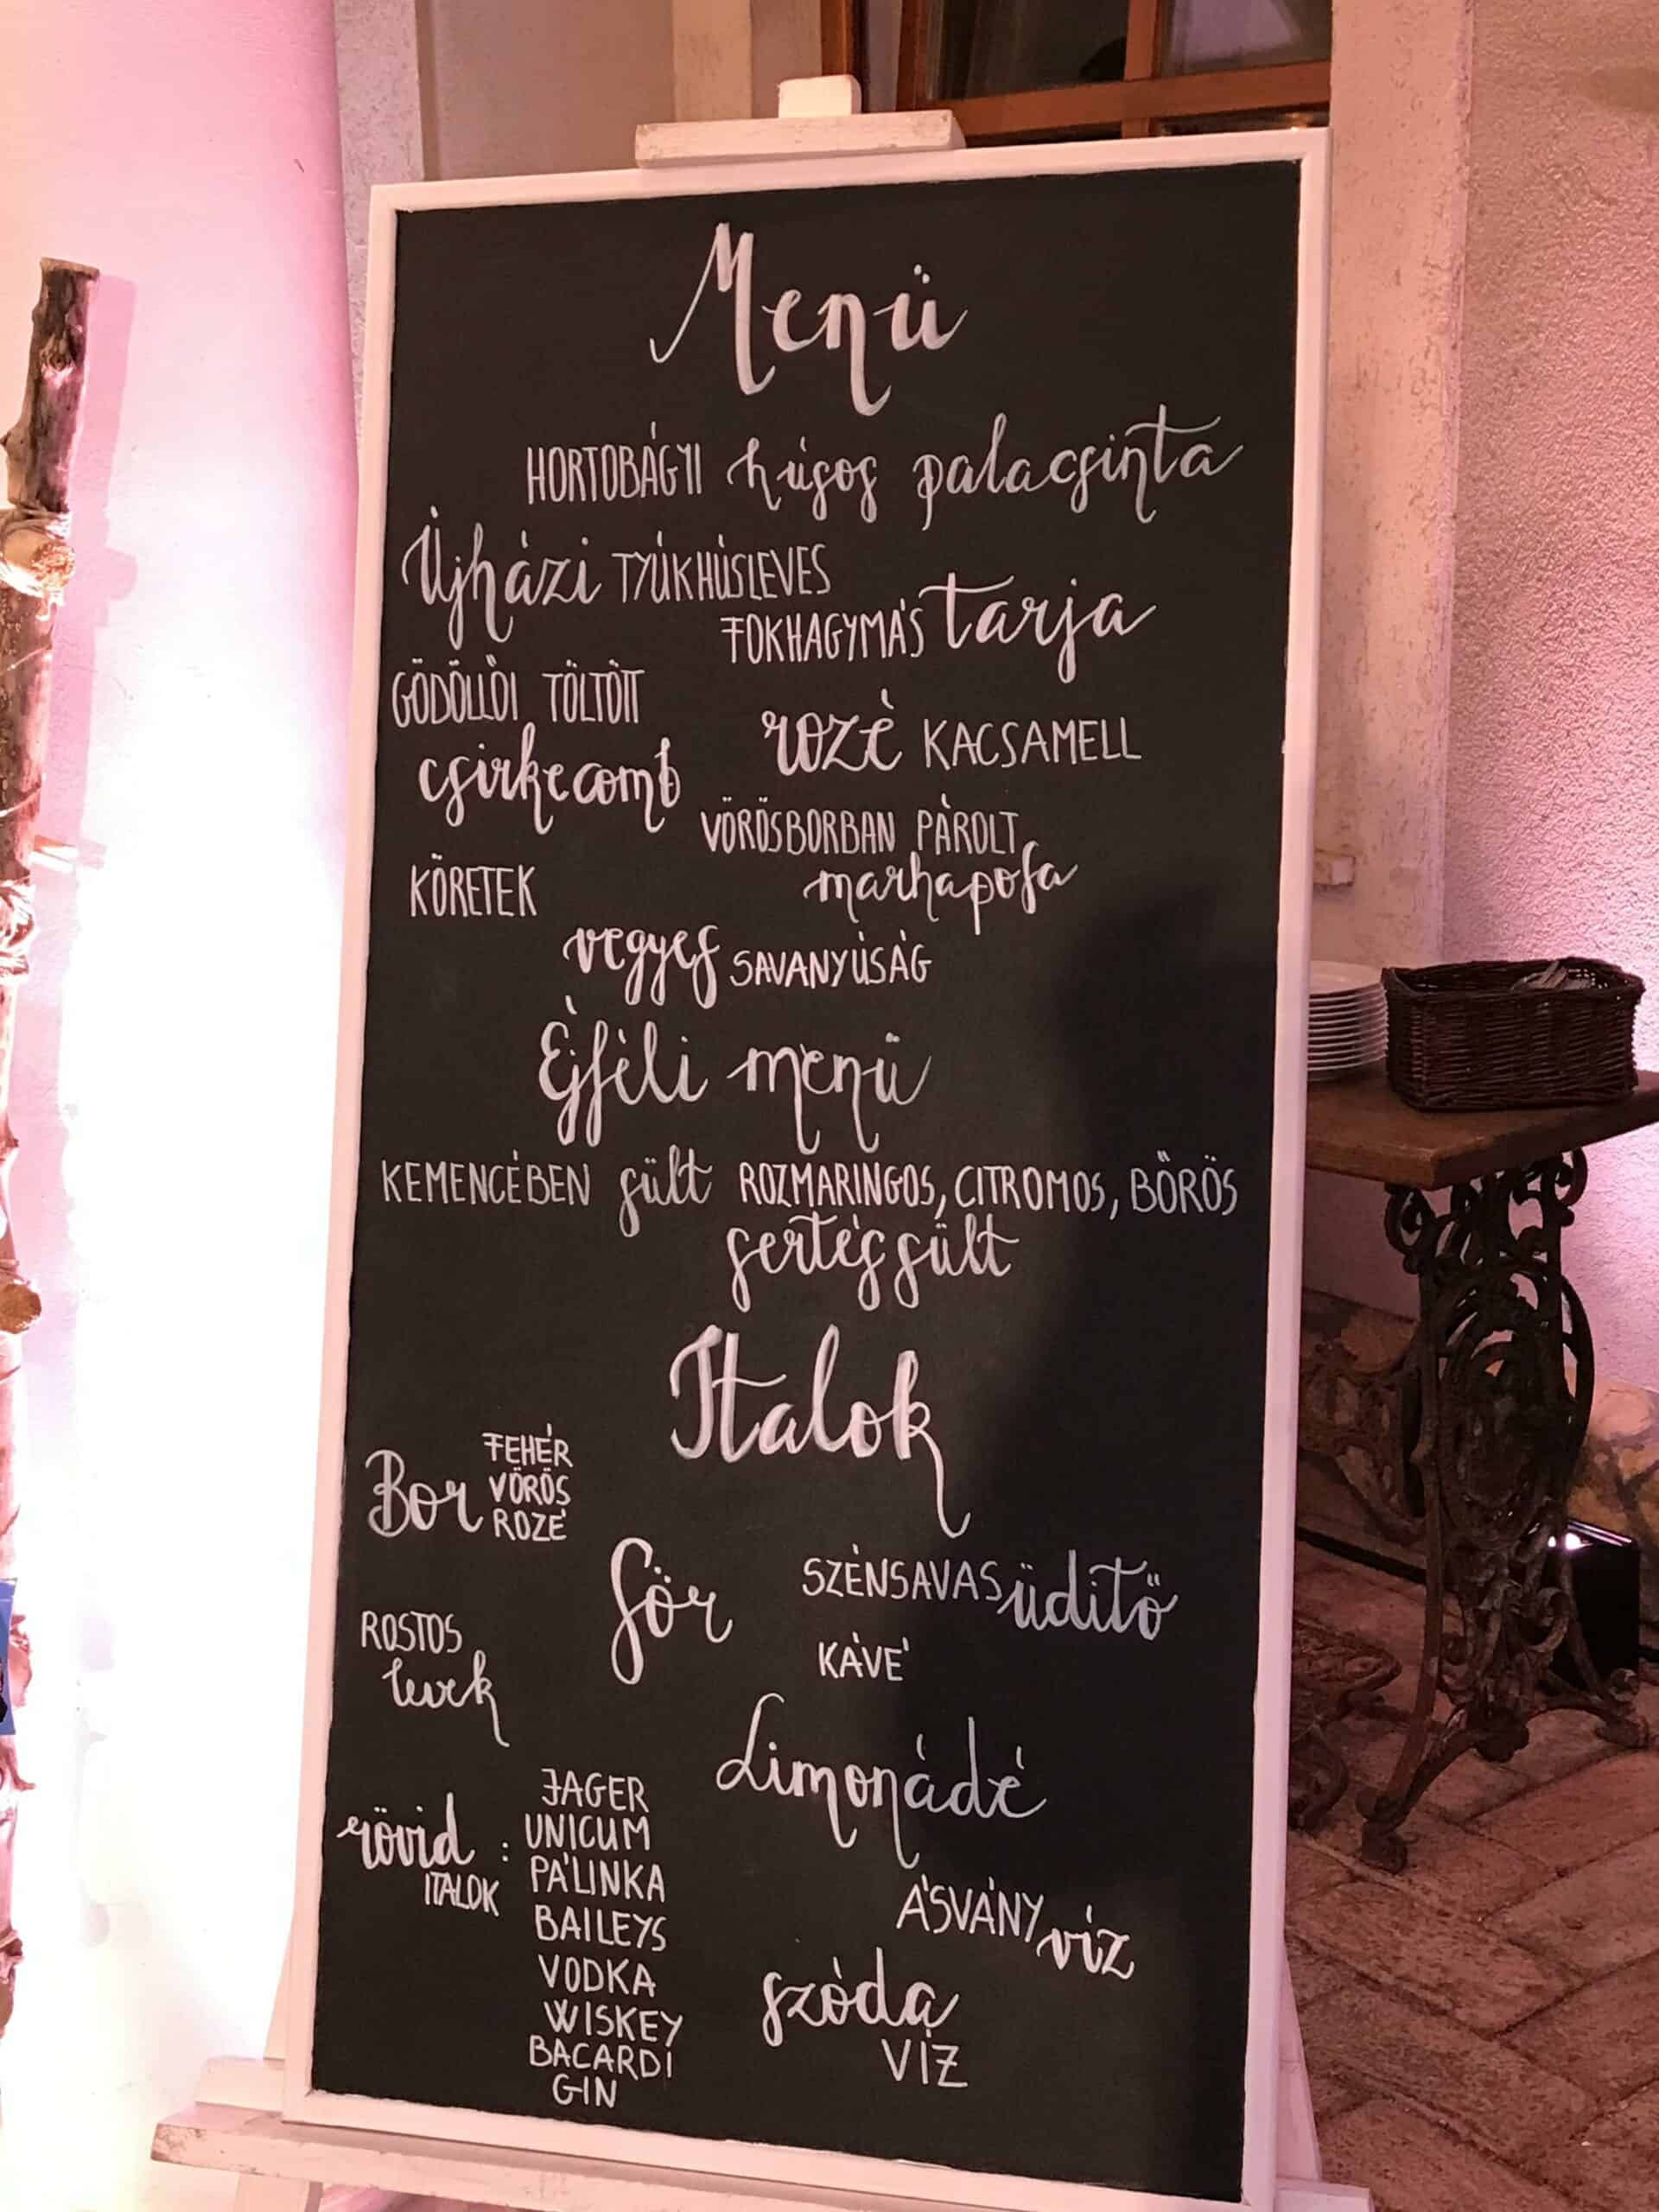 Menü
HORTOBÁGYI húsos palacsinta
Újházi TYÚKHÚSLEVES
FOKHAGYMÁS tarja
GÖDÖLLŐI TÖLTÖTT
csirkecomb
rozé KACSAMELL
VÖRÖSBORBAN PÁROLT
marhapofa
KÖRETEK
vegyes SAVANYÚSÁG
Éjféli menü
KEMENCÉBEN sült ROZMARINGOS, CITROMOS, BŐRÖS
sertés sült
Italok
Bor FEHÉR
VÖRÖS
ROZÉ
Sör
SZÉNSAVAS üdítő
ROSTOS
levek
KÁVÉ
Limonádé
rövid
ITALOK :
JAGER
UNICUM
PÁLINKA
BAILEYS
VODKA
WISKEY
BACARDI
GIN
ÁSVÁNY víz
szóda
VÍZ